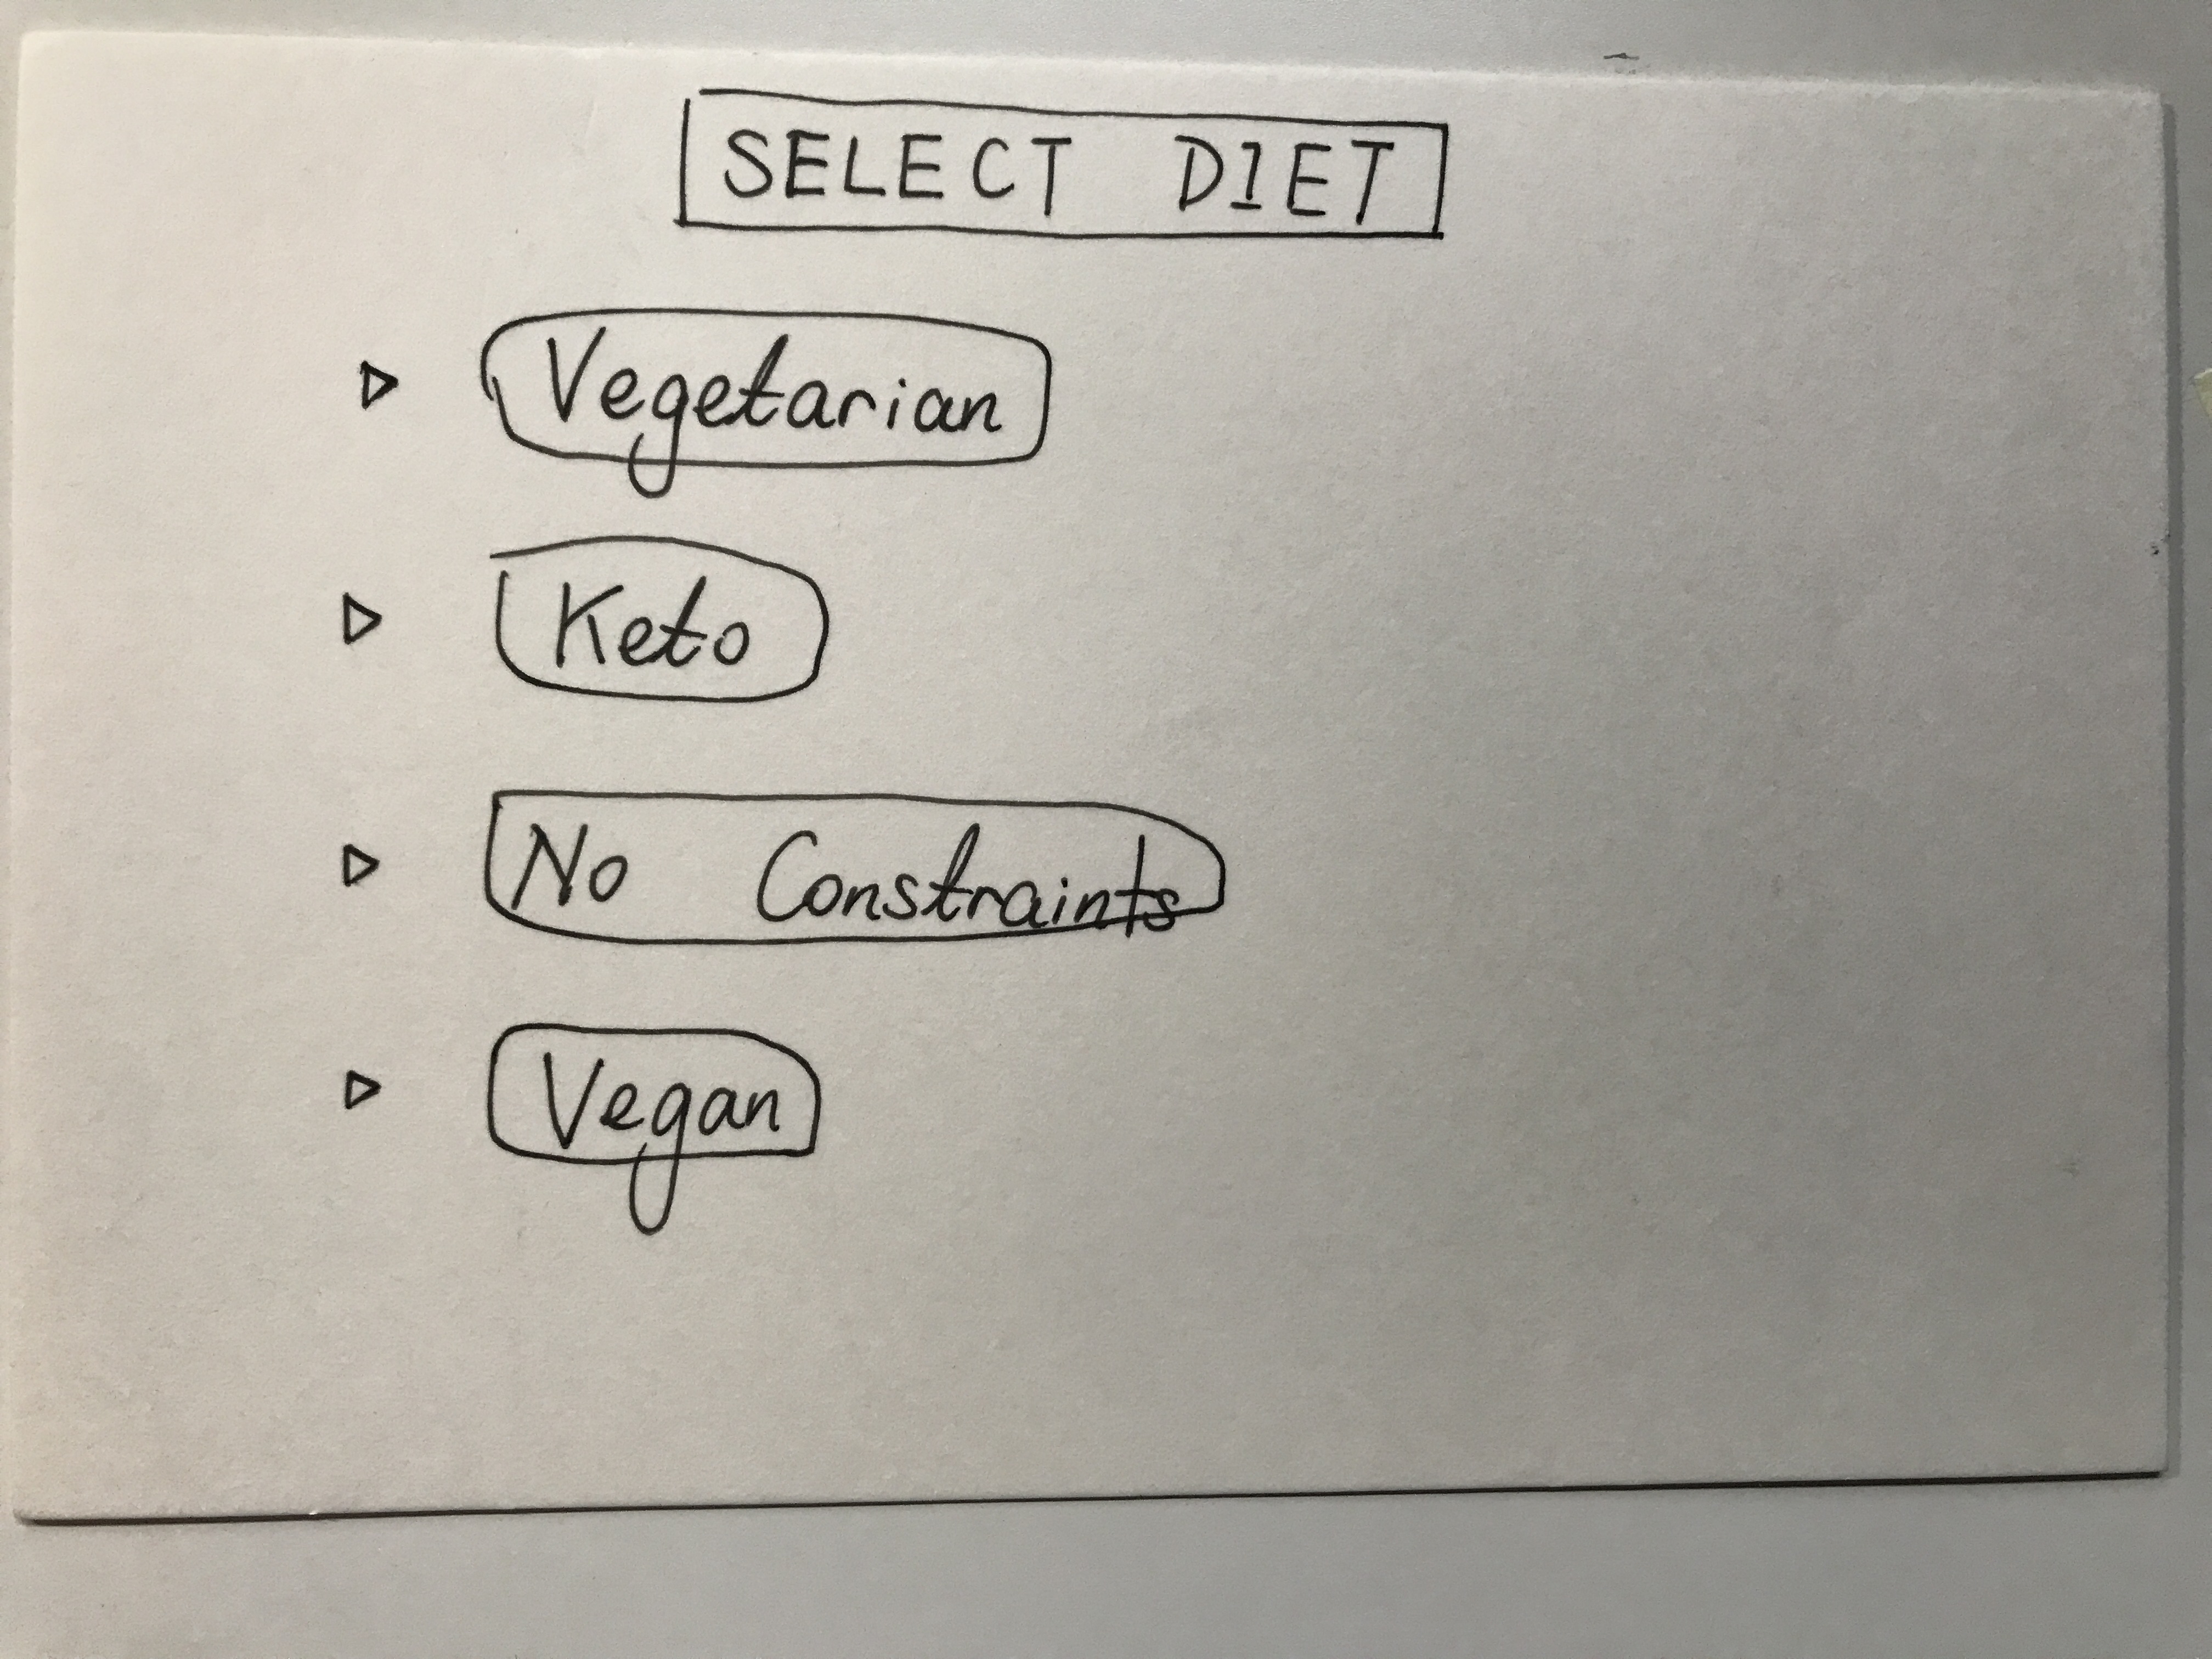 SELECT DIET
Vegetarian
Keto
No Constraints
Vegan